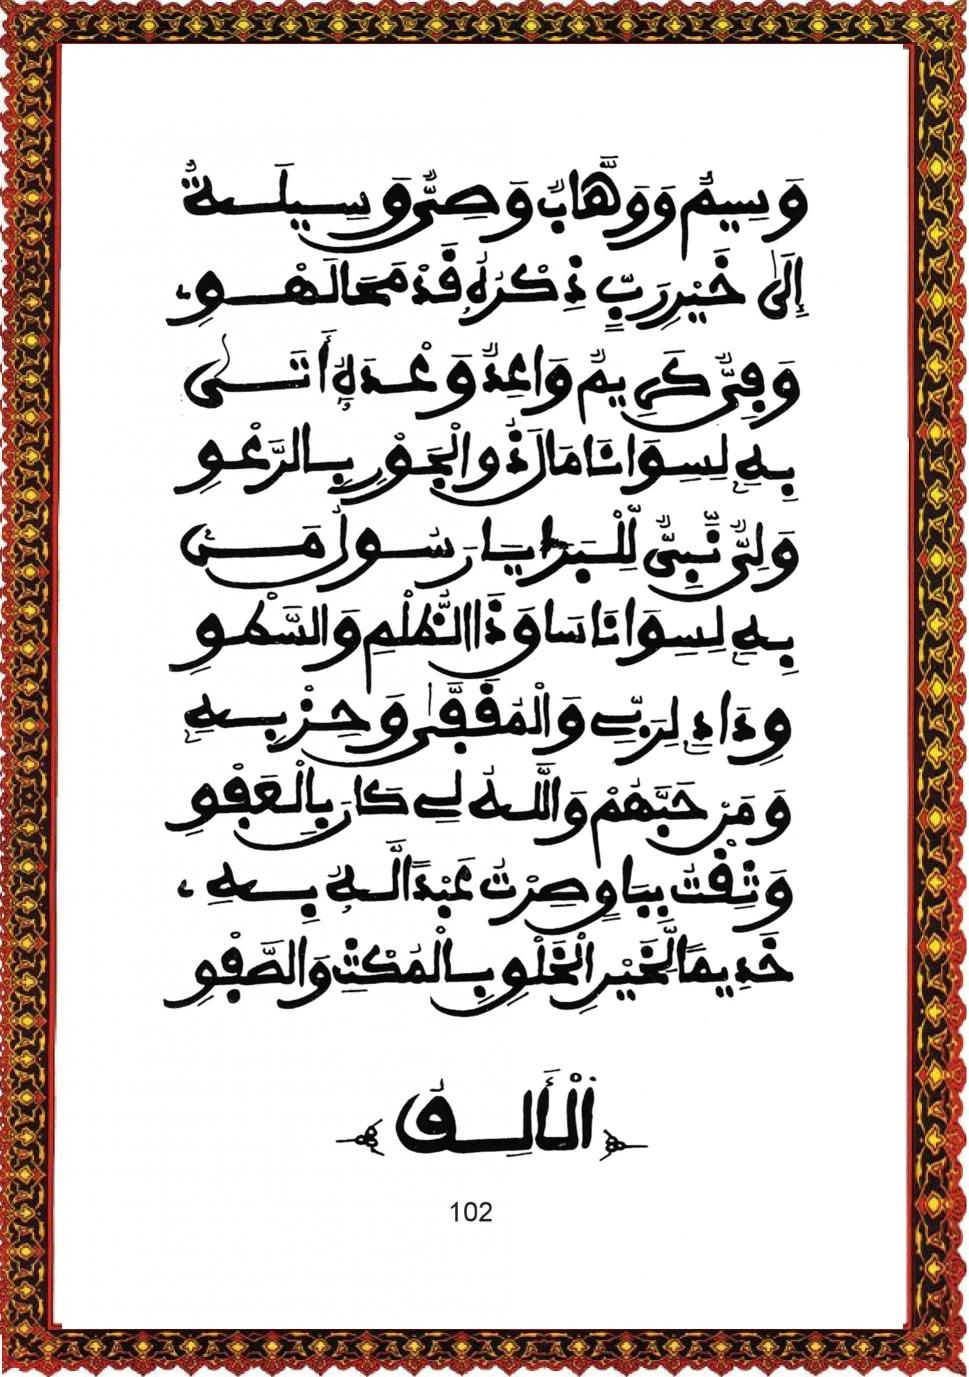 وَسِيمٌ وَوَهَّابٌ وَصِيٌّ وَسِيلَةٌ
إِلَى خَيْرِ رَبٍّ ذِكْرُهُ قَدْ مَحَا لَهْوِ
وَفِيٌّ كَرِيمٌ وَاعِدٌ وَعْدَهُ أَتَى
بِهِ لِسِوَانَا مَالَ ذُو الْجَوْرِ بِالرَّعْوِ
وَلِيٌّ نَّبِيٌّ لِّلْبَرَايَا رَسُولُ مَنْ
بِهِ لِسِوَانَا سَاقَ ذَا الظُّلْمِ وَالسَّطْوِ
وِدَادِ لِرَبِّي وَالْمُقَفَّى وَحِزْبِهِ
وَمَنْ حَبَّهُمْ وَاللَّهُ لِي كَانَ بِالْعَفْوِ
وَثِقْتُ بِبَاقٍ صِرْتُ عَبْدًا لَّهُ بِهِ
خَدِيمًا لِّخَيْرِ الْخَلْقِ بِالْمُكْثِ وَالصَّفْوِ
الْأَلِفُ
102